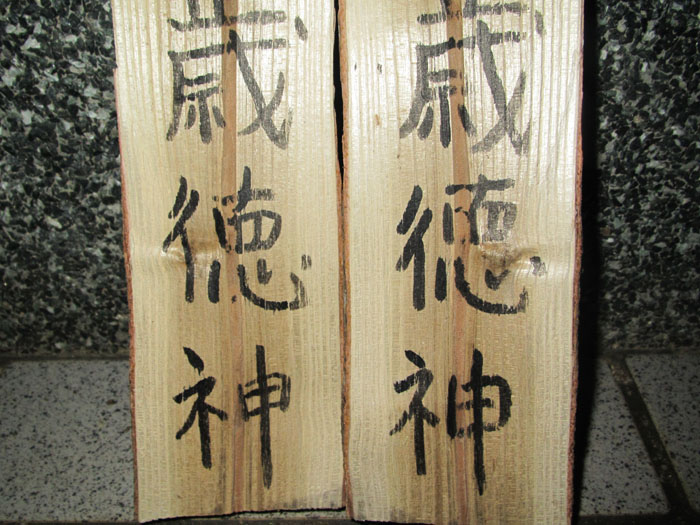 歳徳神
歳徳神